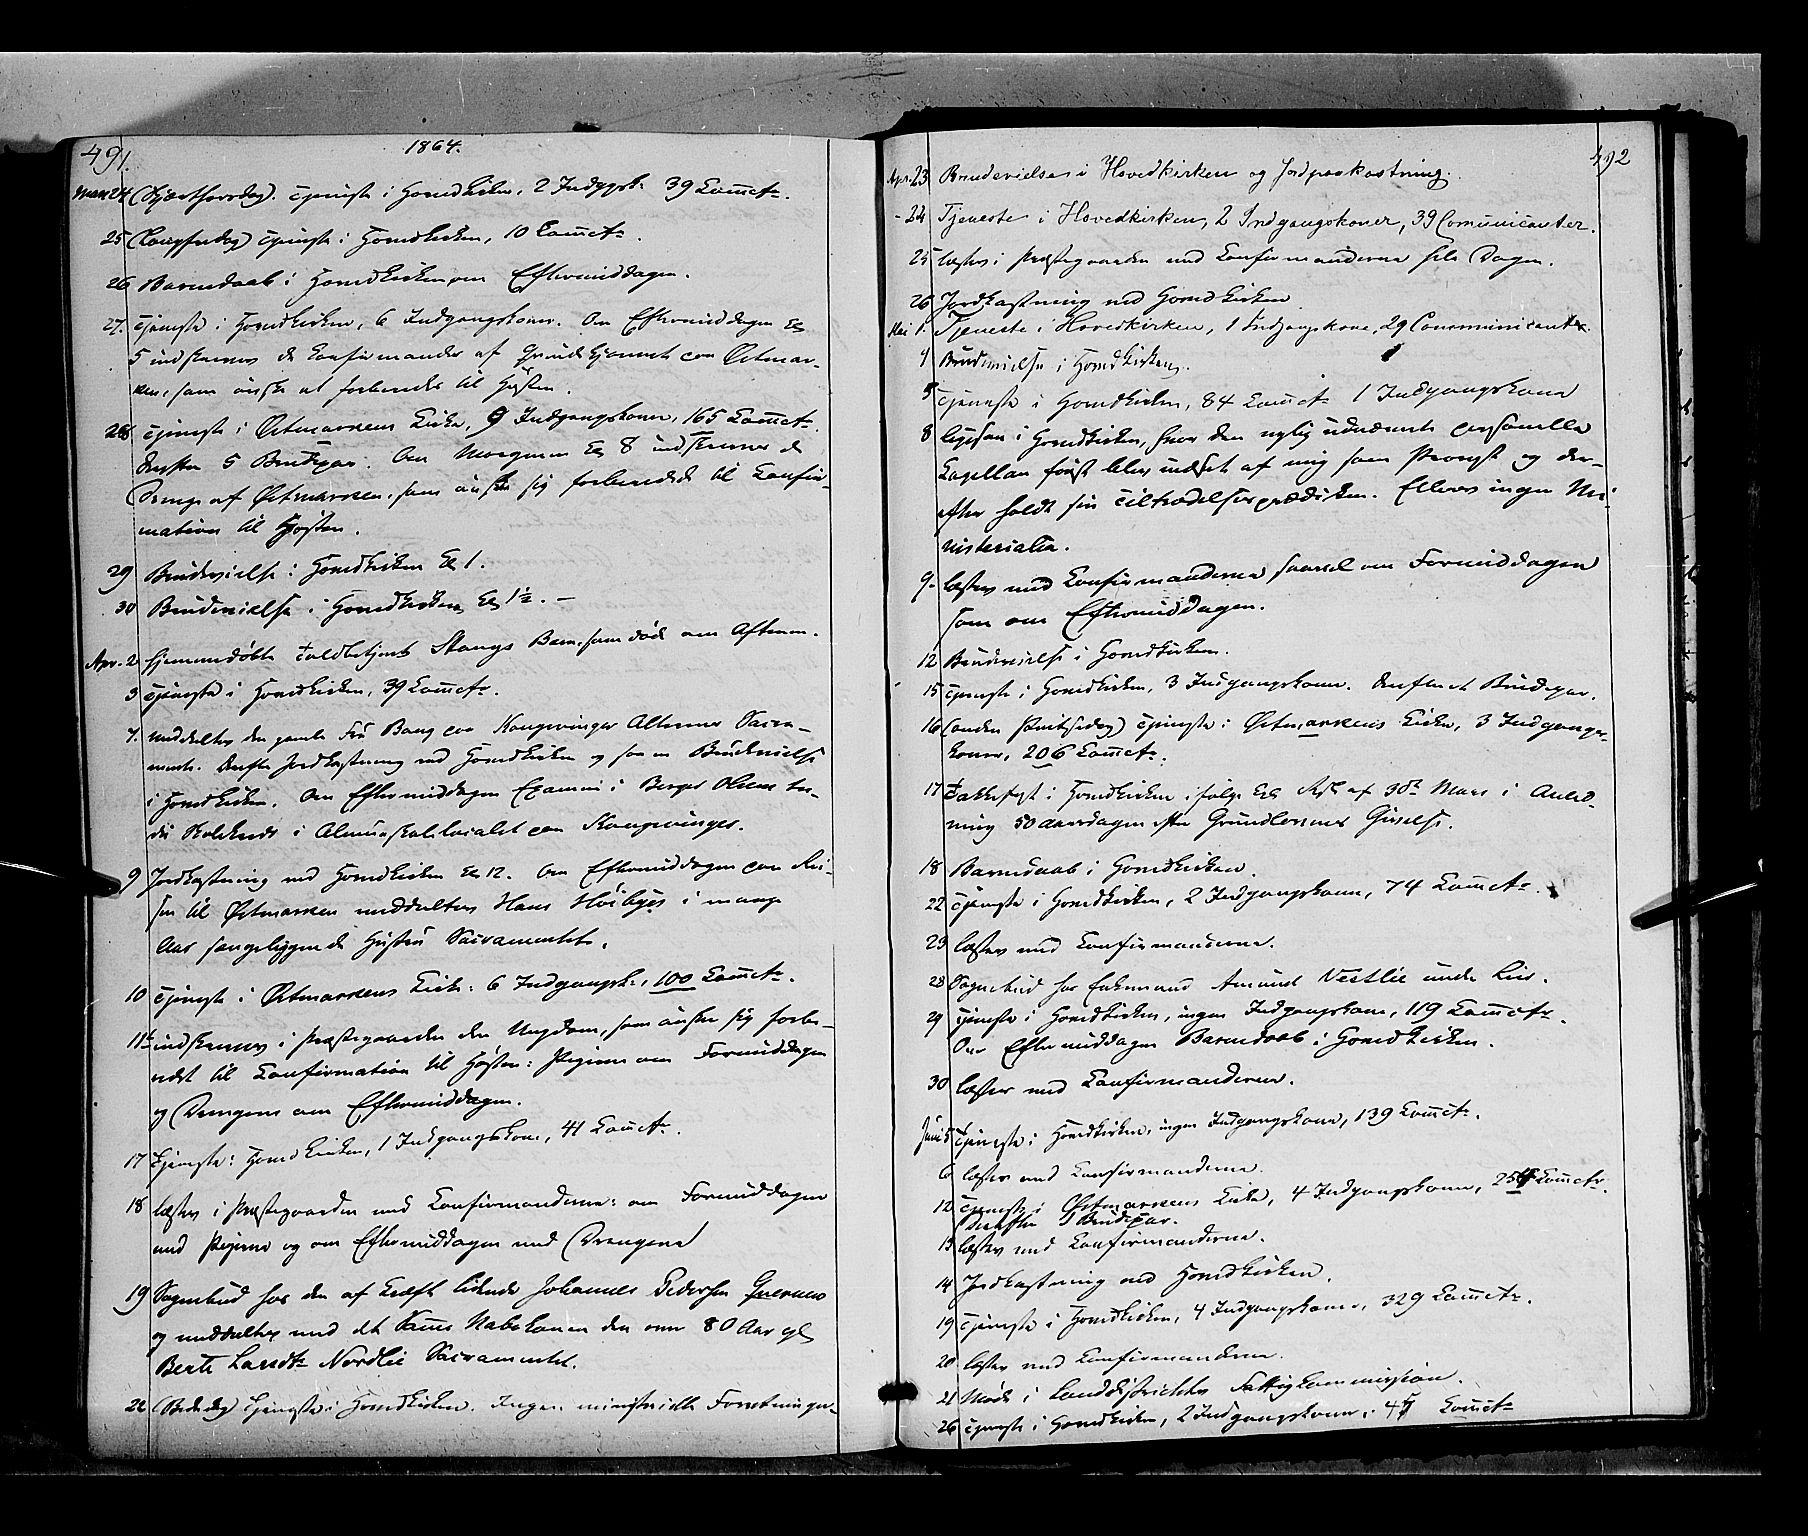 491. 1864.
Mars 24 (Skjærthorsdag). Tjeneste i Hovedkirken, 2 Indggsk. 39 Comcte.
25 (Langfredag) Tjeneste i Hovedkirken, 10 Comcte.
26 Barnedaab i Hovedkirken om Eftermiddagen.
27. Tjeneste i Hovedkirken, 6 Indgangskoner. Om Eftermiddagen Kl
5 indskreves de Konfirmander af Qvindekjønnet paa Østmar-
ken, som ønske at forberedes til Høsten.
28 Tjeneste i Østmarkens Kirke, 9 Indgangskoner, 165 Comcte.
derefter 5 Brudepar. Om Morgenen Kl 8 indskreves de
Drenge af Østmarken, som ønske sig forberedede til Confir-
mation til Høsten.
29 Brudevielse i Hovedkirken Kl 1.
30 Brudevielse i Hovedkirken Kl 1½. –
Apr. 2 hjemmedøbte Toldbetjent Stangs Barn, som døde om Aftenen.
3 Tjeneste i Hovedkirken, 39 Comcte.
7. meddeltes den gamle Fru Bang paa Kongsvinger Alterens Sacra-
mente. Derefter Jordkastning ved Hovedkirken og saa en Brudevielse
i Hovedkirken. Om Eftermiddagen Examen i Berger Olsens
Skolekreds i Almueskolelocalet paa Kongsvinger.
9 Jordkastning ved Hovedkirken Kl 12. Om Eftermiddagen paa Rei-
sen til Østmarken meddeltes Hans Høibyes i mange
Aar sengeliggende Hustru Sacramentet.
10 Tjeneste i Østmarkens Kirke: 6 Indgangsk., 100 Comcte.
11te indskreves i Præstegaarden den Ungdom, som ønsker sig forbe-
redt til Confirmation til Høsten: Pigerne om Formiddagen
og Drengene om Eftermiddagen.
17 Tjeneste i Hovedkirken, 1 Indgangskone, 41 Comcte.
18 læstes i Præstegaarden med Confirmanderne: om Formiddagen
med Pigerne og om Eftermiddagen med Drengene
19 Sognebud hos den af Kræft lidende Johannes Pedersen
og meddeltes med det Samme Nabokonen den over 80 Aar gl
Berte Larsdtr Nordlie Sacramentet.
22 (Bededag) Tjeneste i Hovedkirken. Ingen ministerielle Forretninger.
492
Apr. 23 Brudevielser i Hovedkirken og Jordpaakastning.
- 24 Tjeneste i Hovedkirken, 2 Indgangskoner, 39 Comunicanter.
25 læstes i Præstegaarden med Confirmanderne hele Dagen.
26 Jordkastning ved Hovedkirken
Mai 1. Tjeneste i Hovedkirken, 1 Indgangskone, 29 Communicanter.
4 Brudevielse i Hovedkirken.
5 Tjeneste i Hovedkirken, 84 Comcte 1 Indgangskone
8 ligesaa i Hovedkirken, hvor den nylig udnævnte personelle
Capellan først blev indsat af mig som Provst og der-
efter holdt sin Tiltrædelsesprædiken. Ellers ingen Mi-
nisterialia.
9. læstes med Confirmanderne saavel om Formiddagen
som om Eftermiddagen.
12 Brudevielse i Hovedkirken.
15 Tjeneste i Hovedkirken, 3 Indgangskoner. Derefter et Brudepar.
16 (anden Pintsedag) Tjeneste i Østmarkens Kirke, 3 Indgangs-
koner, 206 Comcte.
17 Takkefest i Hovedkirken ifølge Kgl Res. af 30te Mars i Anled-
ning 50 aarsdagen efter Grundlovens Givelse.
18 Barnedaab i Hovedkirken.
22 Tjeneste i Hovedkirken, 2 Indgangskoner, 74 Comcte.
23 læstes med Confirmanderne.
28 Sognebud hos Enkemand Amund Vestlie under Lier.
29 Tjeneste i Hovedkirken, ingen Indgangskone, 119 Comcte.
Om Eftermiddagen Barnedaab i Hovedkirken.
30 læstes med Confirmanderne.
Juni 5 Tjeneste i Hovedkirken, ingen Indgangskone, 139 Comcte.
6 læstes med Confirmanderne.
12 Tjeneste i Østmarkens Kirke, 4 Indgangskoner, 254 Comcte.
Derefter 1 Brudepar.
13 læstes med Confirmanderne.
14 Jordkastning ved Hovedkirken.
19 Tjeneste i Hovedkirken, 4 Indgangskoner, 329 Comcte.
20 læstes med Confirmanderne.
21 Møde i Landdistriktets Fattigkommission.
26 Tjeneste i Hovedkirken, 2 Indgangskoner, 47 Comcte